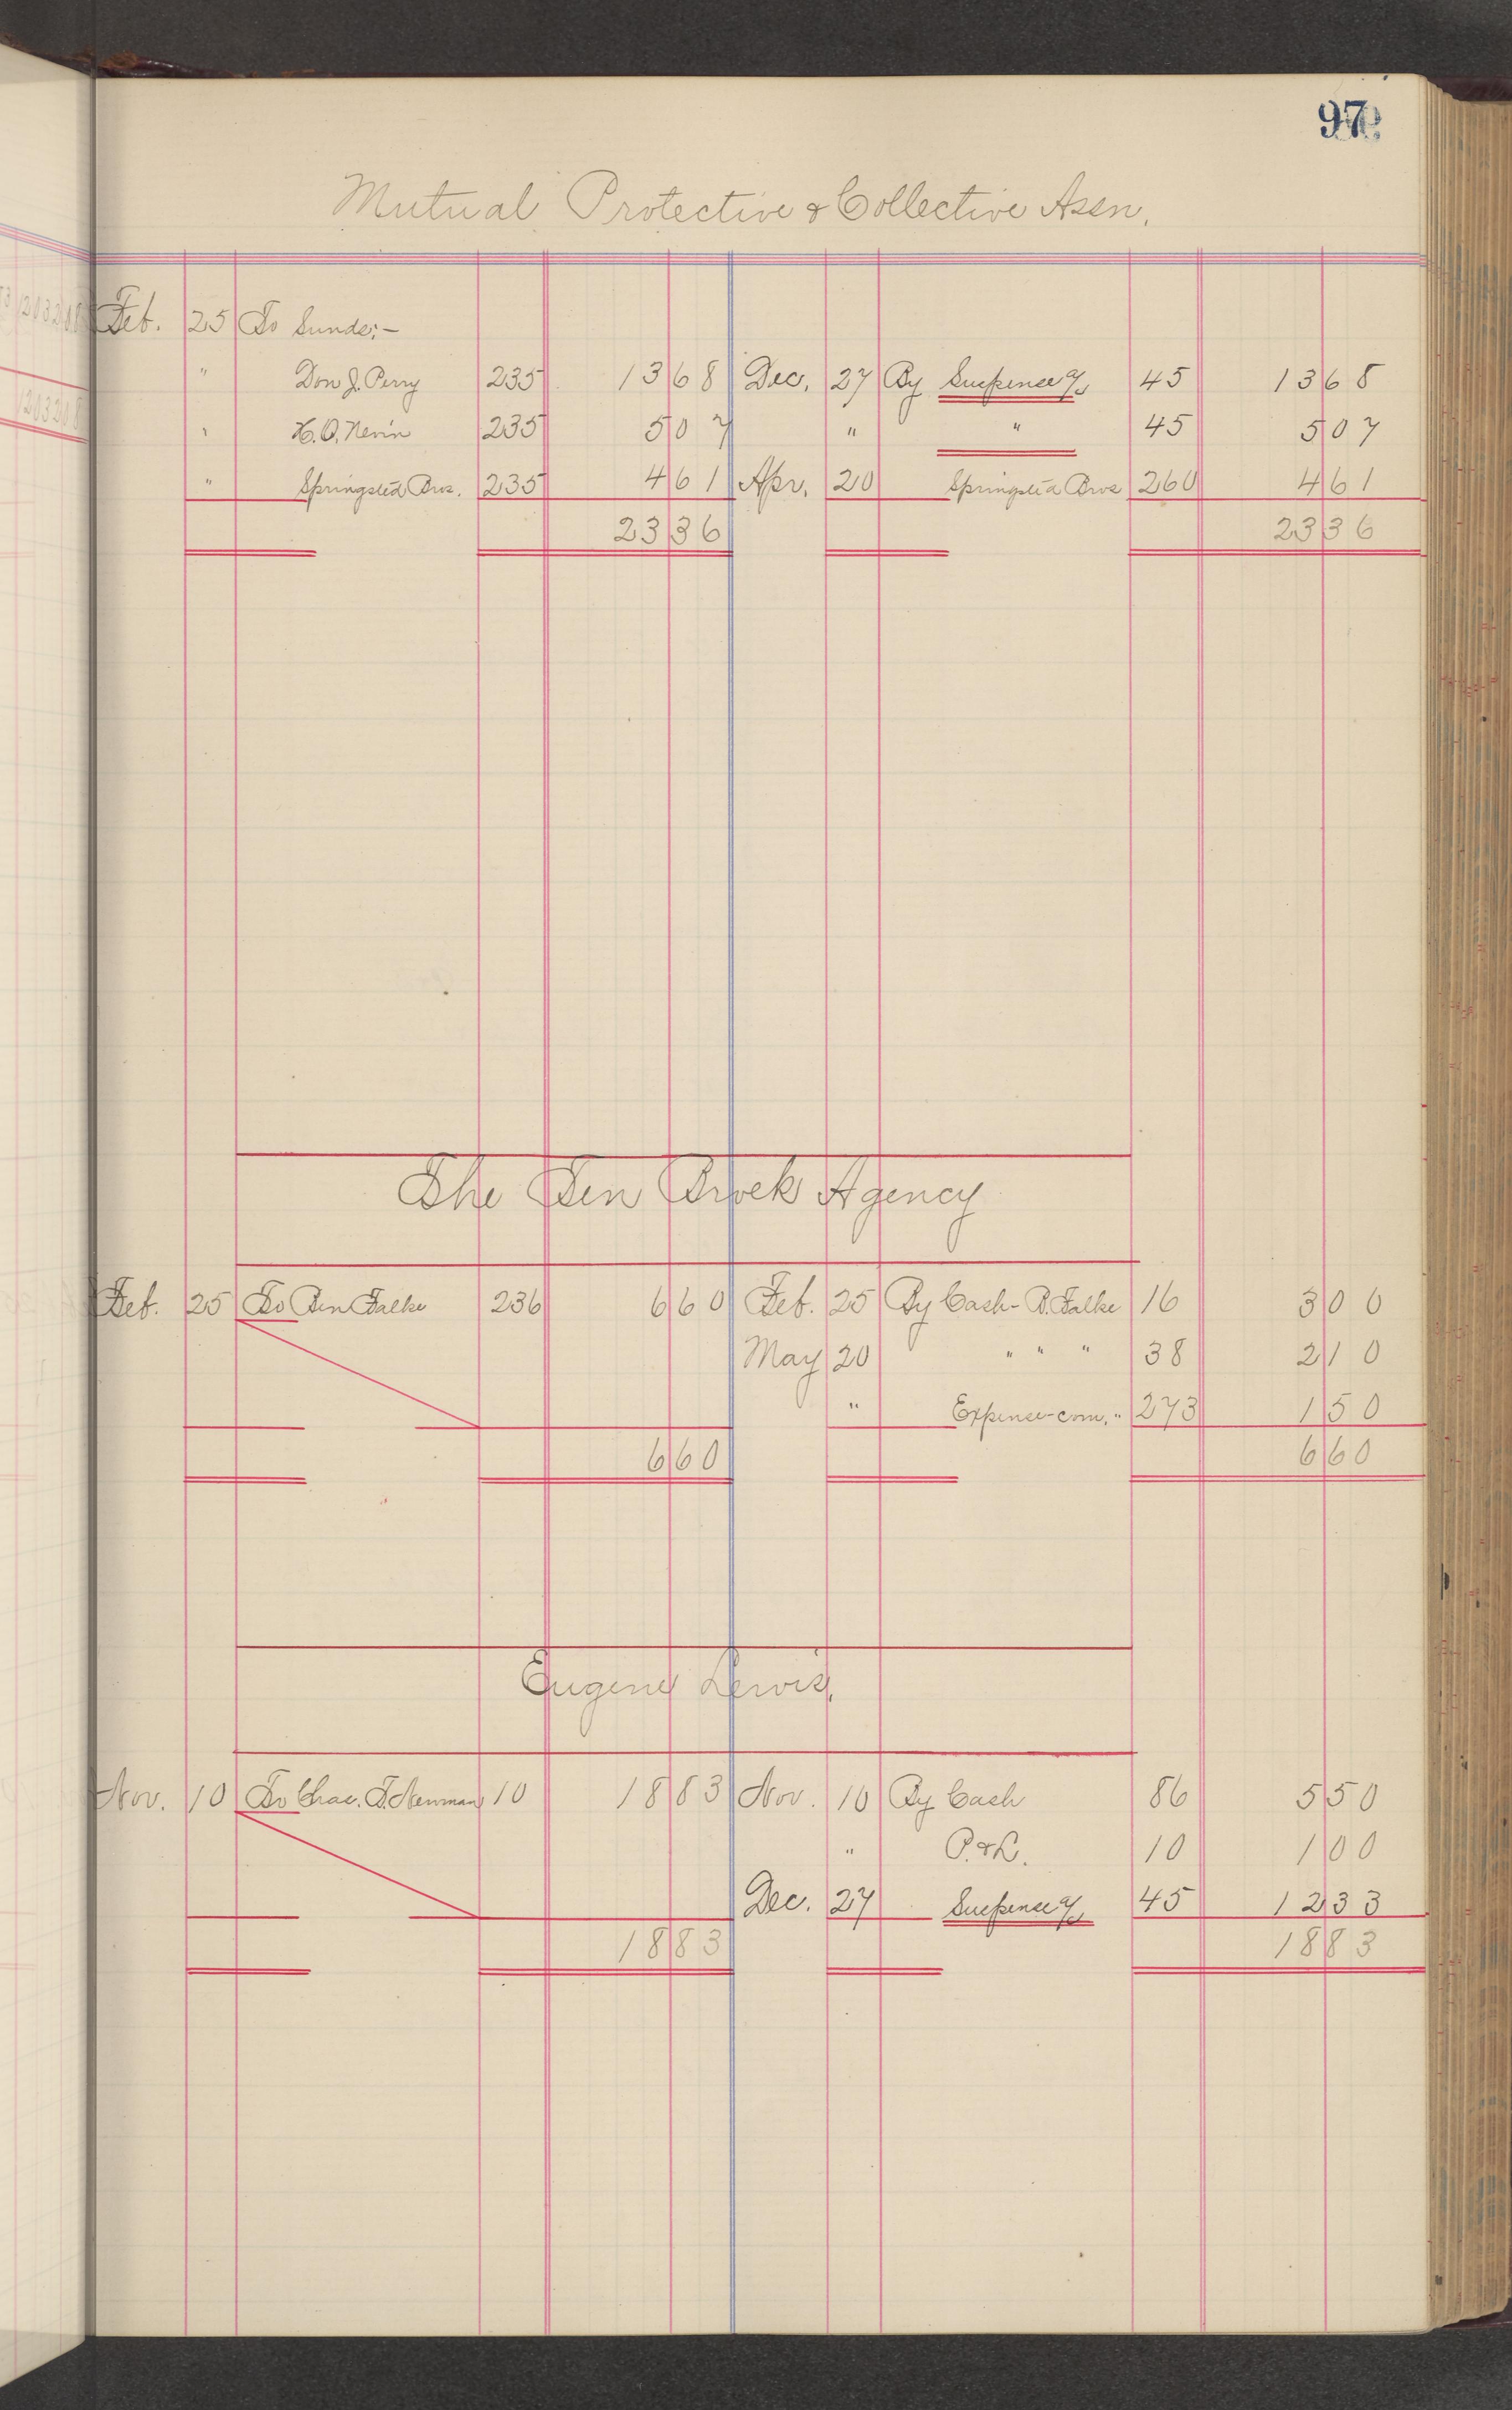 97
Mutual Protective & Collective Assn.
Feb. 25 To Sunds:-
" Don J. Perry 235 13 68 Dec. 27 By Suspense a/c 45 13 68
" H.O. Nevin 235 5 07 " " 45 5 07
" Springsted Bros. 235 4 61 Apr. 20 Springsted Bros 260 4 61
23 36 23 36
The Ten Broek Agency
Feb. 25 To Ben Falke 236 6 60 Feb. 25 By Cash - B. Falke 16 3 00
May 20 " " " 38 2 10
" Expense-com. " 273 1 50
6 60 6 60
Eugene Lewis,
Nov. 10 To Chas. T. Newman 10 18 83 Nov. 10 By Cash 86 5 50
" P. & L. 10 1 00
Dec. 27 Suspense a/c 45 12 33
18 83 18 83